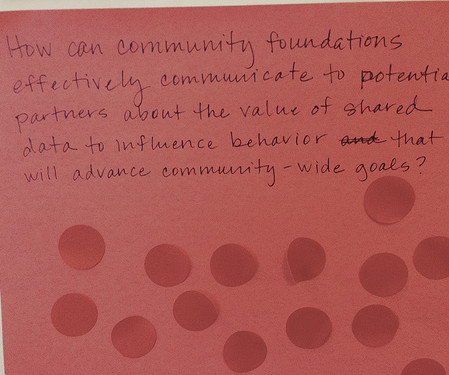 How can community foundations
effectively communicate to potentia
partners about the value of shared
data to influence behavior and that
will advance community-wide goals?